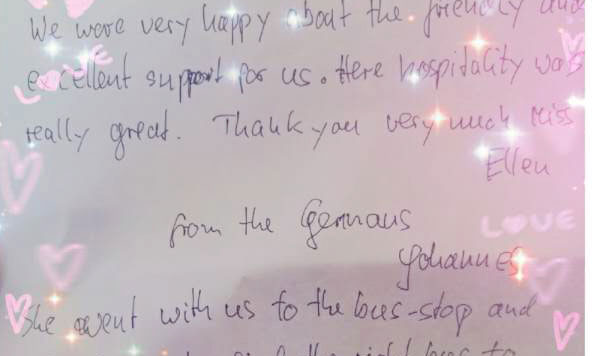 We were very happy about the friendly and
excellent support for us. Here hospitality was
LOVE
really great. Thank you very much Miss
Ellen
from the Germans
LOVE
Yohannes
She went with us to the bus-stop and
the right bus to